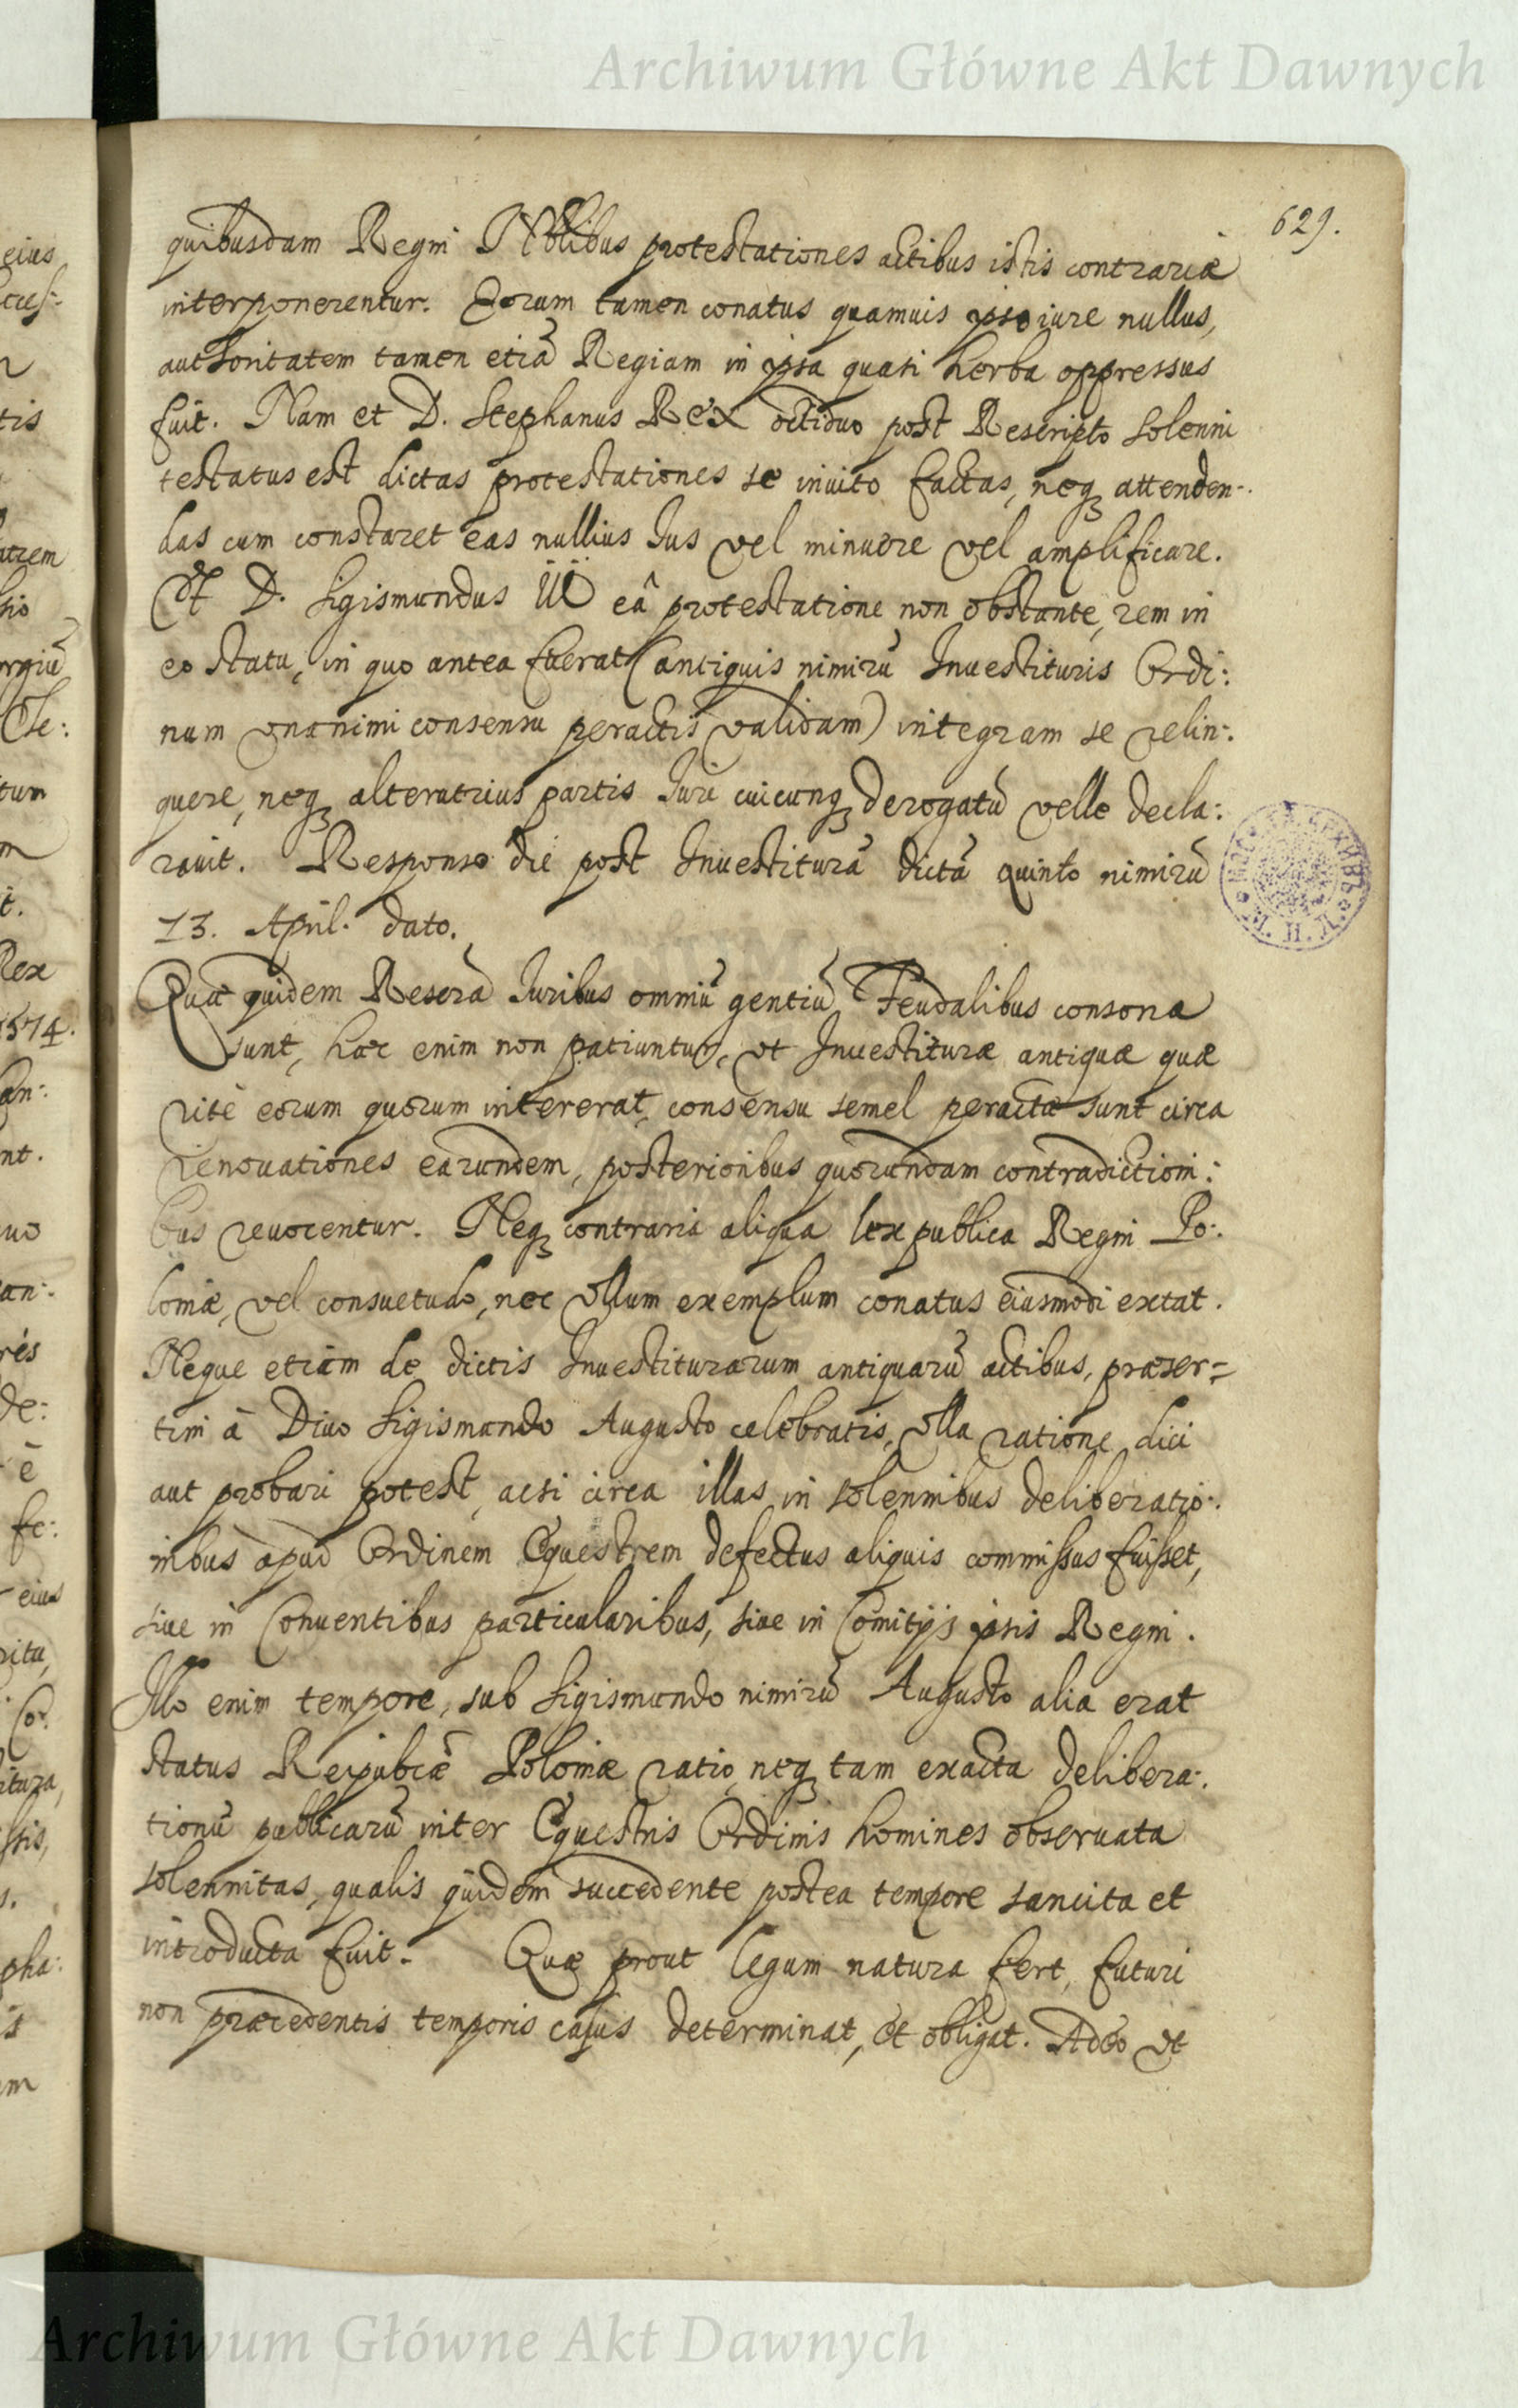 Archiwum Główne Akt Dawnych
629.
quibusdam Regni Nobilibus protestationes actibus istis contrariæ
interponerentur. Eorum tamen conatus quamuis ipso iure nullus,
authoritatem tamen etiã Regiam in ipsa quasi herba oppressus
fuit. Nam et D. Stephanus Rex octiduo post Rescripto solenni
testatus est dictas protestationes se inuito factas, neq; attenden-
das cum constaret eas nullius Jus vel minuere vel amplificare.
Et D. Sigismundus III eâ protestatione non obstante, rem in
eo statu, in quo antea fuerat (antiquis nimirũ Inuestituris Ordi:
num vnanimi consensu peractis validam) integram se relin:
quere, neq; alterutrius partis Juri cuicunq; derogatũ velle decla:
rauit. Responso die post Inuestiturã dictã quinto nimirũ
13. April. dato.
Quæ quidem Rescrã Juribus omniũ gentiũ Feudalibus consona
sunt, hæc enim non patiuntur, vt Inuestituræ antiquæ quæ
ritè eorum quorum intererat, consensu semel peractæ sunt circa
renouationes earundem, posterioribus quorundam contradictioni:
bus reuocentur. Neq; contraria aliqua lex publica Regni Po:
loniæ, vel consuetudo, nec vllum exemplum conatus eiusmodi extat.
Neque etiam de dictis Inuestiturarum antiquarũ actibus, præser=
tim à Diuo Sigismundo Augusto celebratis, vlla ratione dici
aut probari potest, acsi circa illas in solennibus deliberatio:
nibus apud Ordinem Equestrem defectus aliquis commissus fuisset,
siue in Conuentibus particularibus, siue in Comitijs ipsis Regni.
Illo enim tempore, sub Sigismundo nimirũ Augusto alia erat
status Reipubcæ Poloniæ ratio, neq; tam exacta delibera:
tionũ publicarũ inter Equestris Ordinis homines obseruata
solennitas, qualis quidem succedente postea tempore sancita et
introducta fuit. Quæ prout legum natura fert, futuri
non præcedentis temporis casus determinat, et obligat. Adeò vt
Archiwum Główne Akt Dawnych